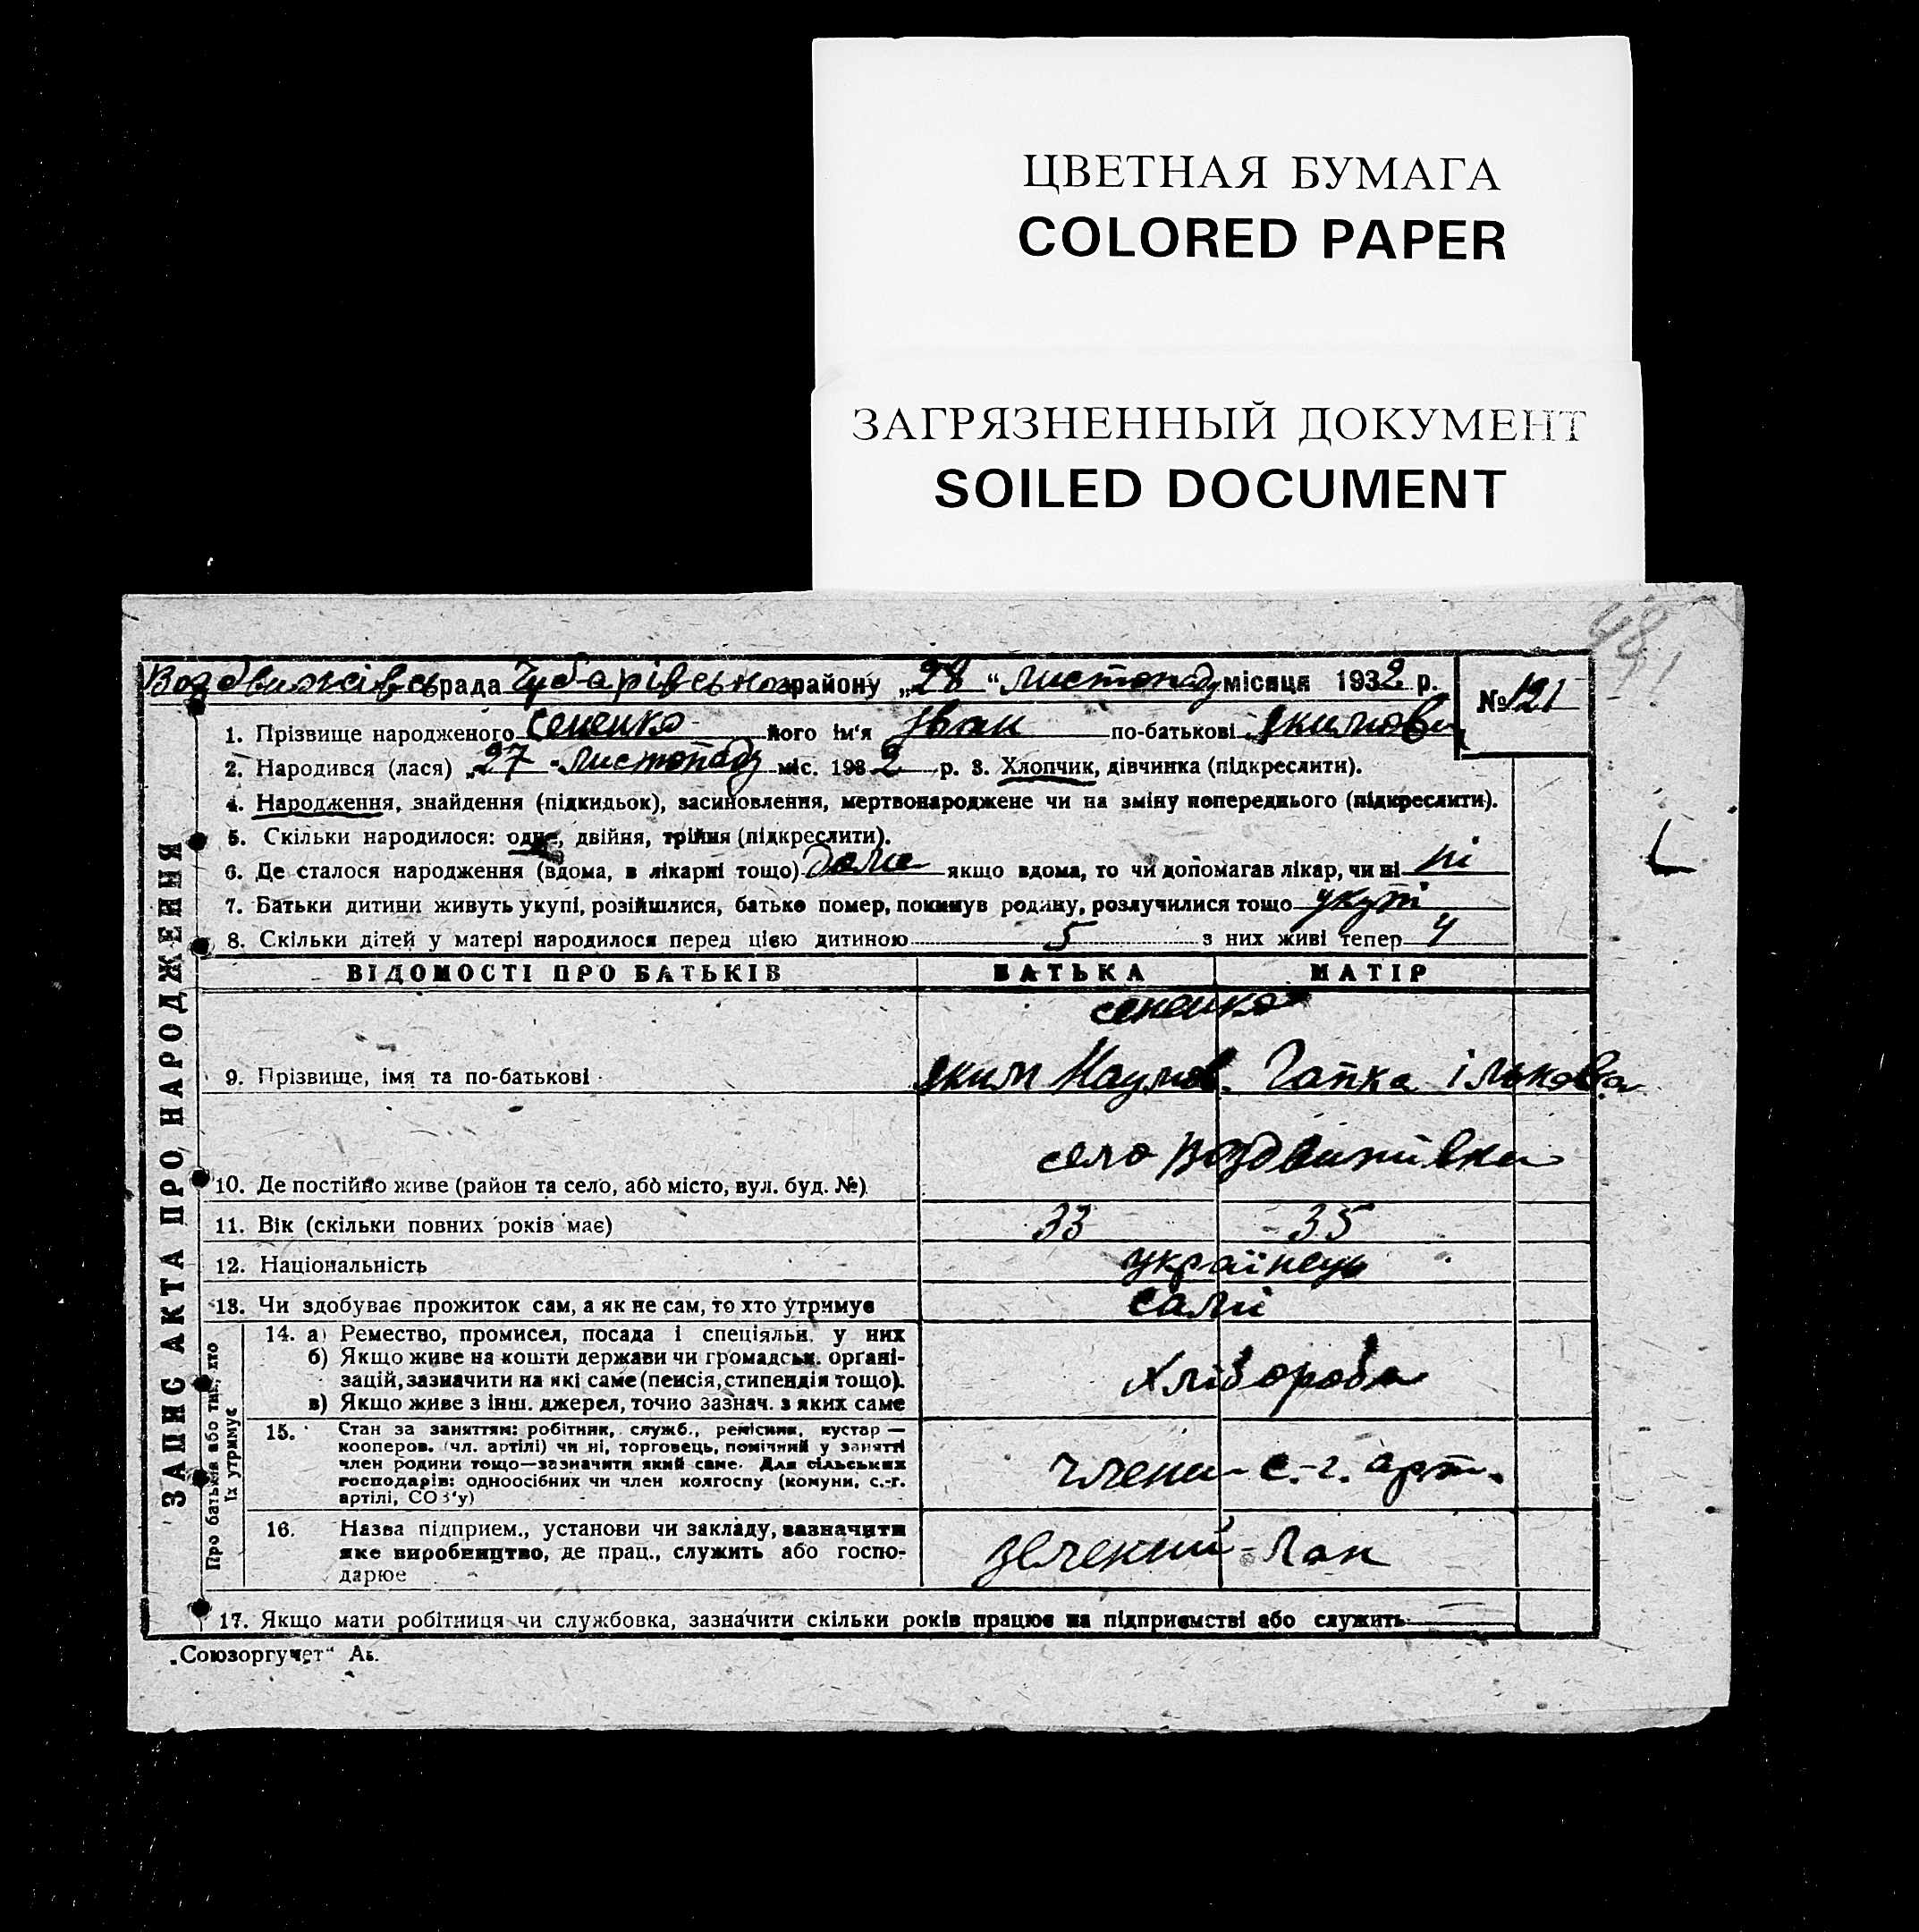 ЦВЕТНАЯ БУМАГА
COLORED PAPER
ЗАГРЯЗНЕННЫЙ ДОКУМЕНТ
SOILED DOCUMENT
48
Воздвижівсь рада Чубарівського району „28“ листопаду місяця 1932 р. № 121
1. Прізвище народженого Сененко його ім'я Іван по-батькові Якимови
2. Народився (лася) „27“ листопаду міс. 1932 р. 3. Хлопчик, дівчинка (підкреслити).
4. Народження, знайдення (підкидьок), засиновлення, мертвонароджене чи на зміну попереднього (підкреслити).
5. Скільки народилося: одне, двійня, трійня (підкреслити).
6. Де сталося народження (вдома, в лікарні тощо) дома якщо вдома, то чи допомагав лікар, чи ні ні
7. Батьки дитини живуть укупі, розійшлися, батько помер, покинув родину, розлучилися тощо укупі
8. Скільки дітей у матері народилося перед цією дитиною 5 з них живі тепер 4
ЗАПИС АКТА ПРО НАРОДЖЕННЯ
ВІДОМОСТІ ПРО БАТЬКІВ БАТЬКА МАТІР
Сененко
9. Прізвище, імя та по-батькові Яким Наумов. Гапка Ількова
10. Де постійно живе (район та село, або місто, вул. буд. №) село Воздвижівка
11. Вік (скільки повних років має) 33 35
12. Національність українець
13. Чи здобуває прожиток сам, а як не сам, то хто утримує самі
Про батьків або тих, хто
їх утримує
14. а) Ремество, промисел, посада і спеціяльн. у них
б) Якщо живе на кошти держави чи громадськ. органі-
зацій, зазначити на які саме (пенсія, стипендія тощо).
в) Якщо живе з інш. джерел, точно зазнач. з яких саме
хлібороби
15. Стан за заняттям: робітник, служб., ремісник, кустар —
кооперов. (чл. артілі) чи ні, торговець, помічний у занятті
член родини тощо—зазначити який саме. Для сільських
господарів: одноосібних чи член колгоспу (комуни, с.-г.
артілі, СОЗ'у)
члени с.-г. арт.
16. Назва підприєм., установи чи закладу, зазначити
яке виробництво, де прац., служить або госпо-
дарює
Зелений-Лан
17. Якщо мати робітниця чи службовка, зазначити скільки років працює на підприємстві або служить
„Союзоргучет“